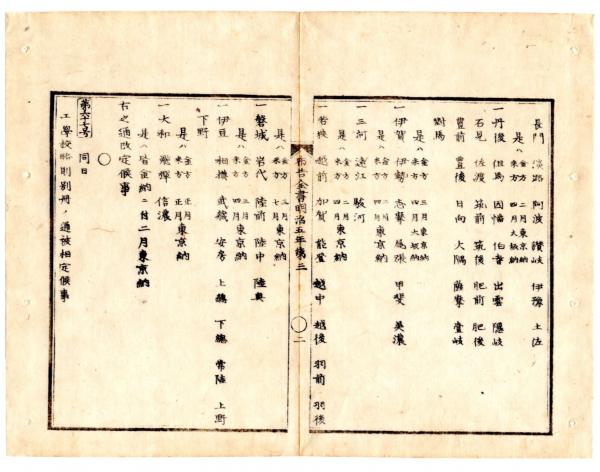 長門 淡路 阿波 讃岐 伊豫 土佐
是ハ 金方 二月東京納
米方 四月大坂納
一丹後 但馬 因幡 伯耆 出雲 隠岐
石見 佐渡 筑前 筑後 肥前 肥後
豊前 豊後 日向 大隅 薩摩 壹岐
對馬
是ハ 金方 三月東京納
米方 四月大坂納
一伊賀 伊勢 志摩 尾張 甲斐 美濃
一三河 遠江 駿河
是ハ 金方 二月東京納
米方 四月東京納
一若狭 越前 加賀 能登 越中 越後 羽前 羽後
布告全書明治五年第三
二
是ハ 金方 三月東京納
米方 七月東京納
一磐城 岩代 陸前 陸中 陸奥
是ハ 金方 三月東京納
米方 四月東京納
一伊豆 相模 武藏 安房 上總 下總 常陸 上野
下野
是ハ 金方 正月東京納
米方 正月東京納
一大和 飛騨 信濃
是ハ皆金納ニ付二月東京納
右之通改定候事
○
第六十七号 同日
工學校略則別冊ノ通被相定候事